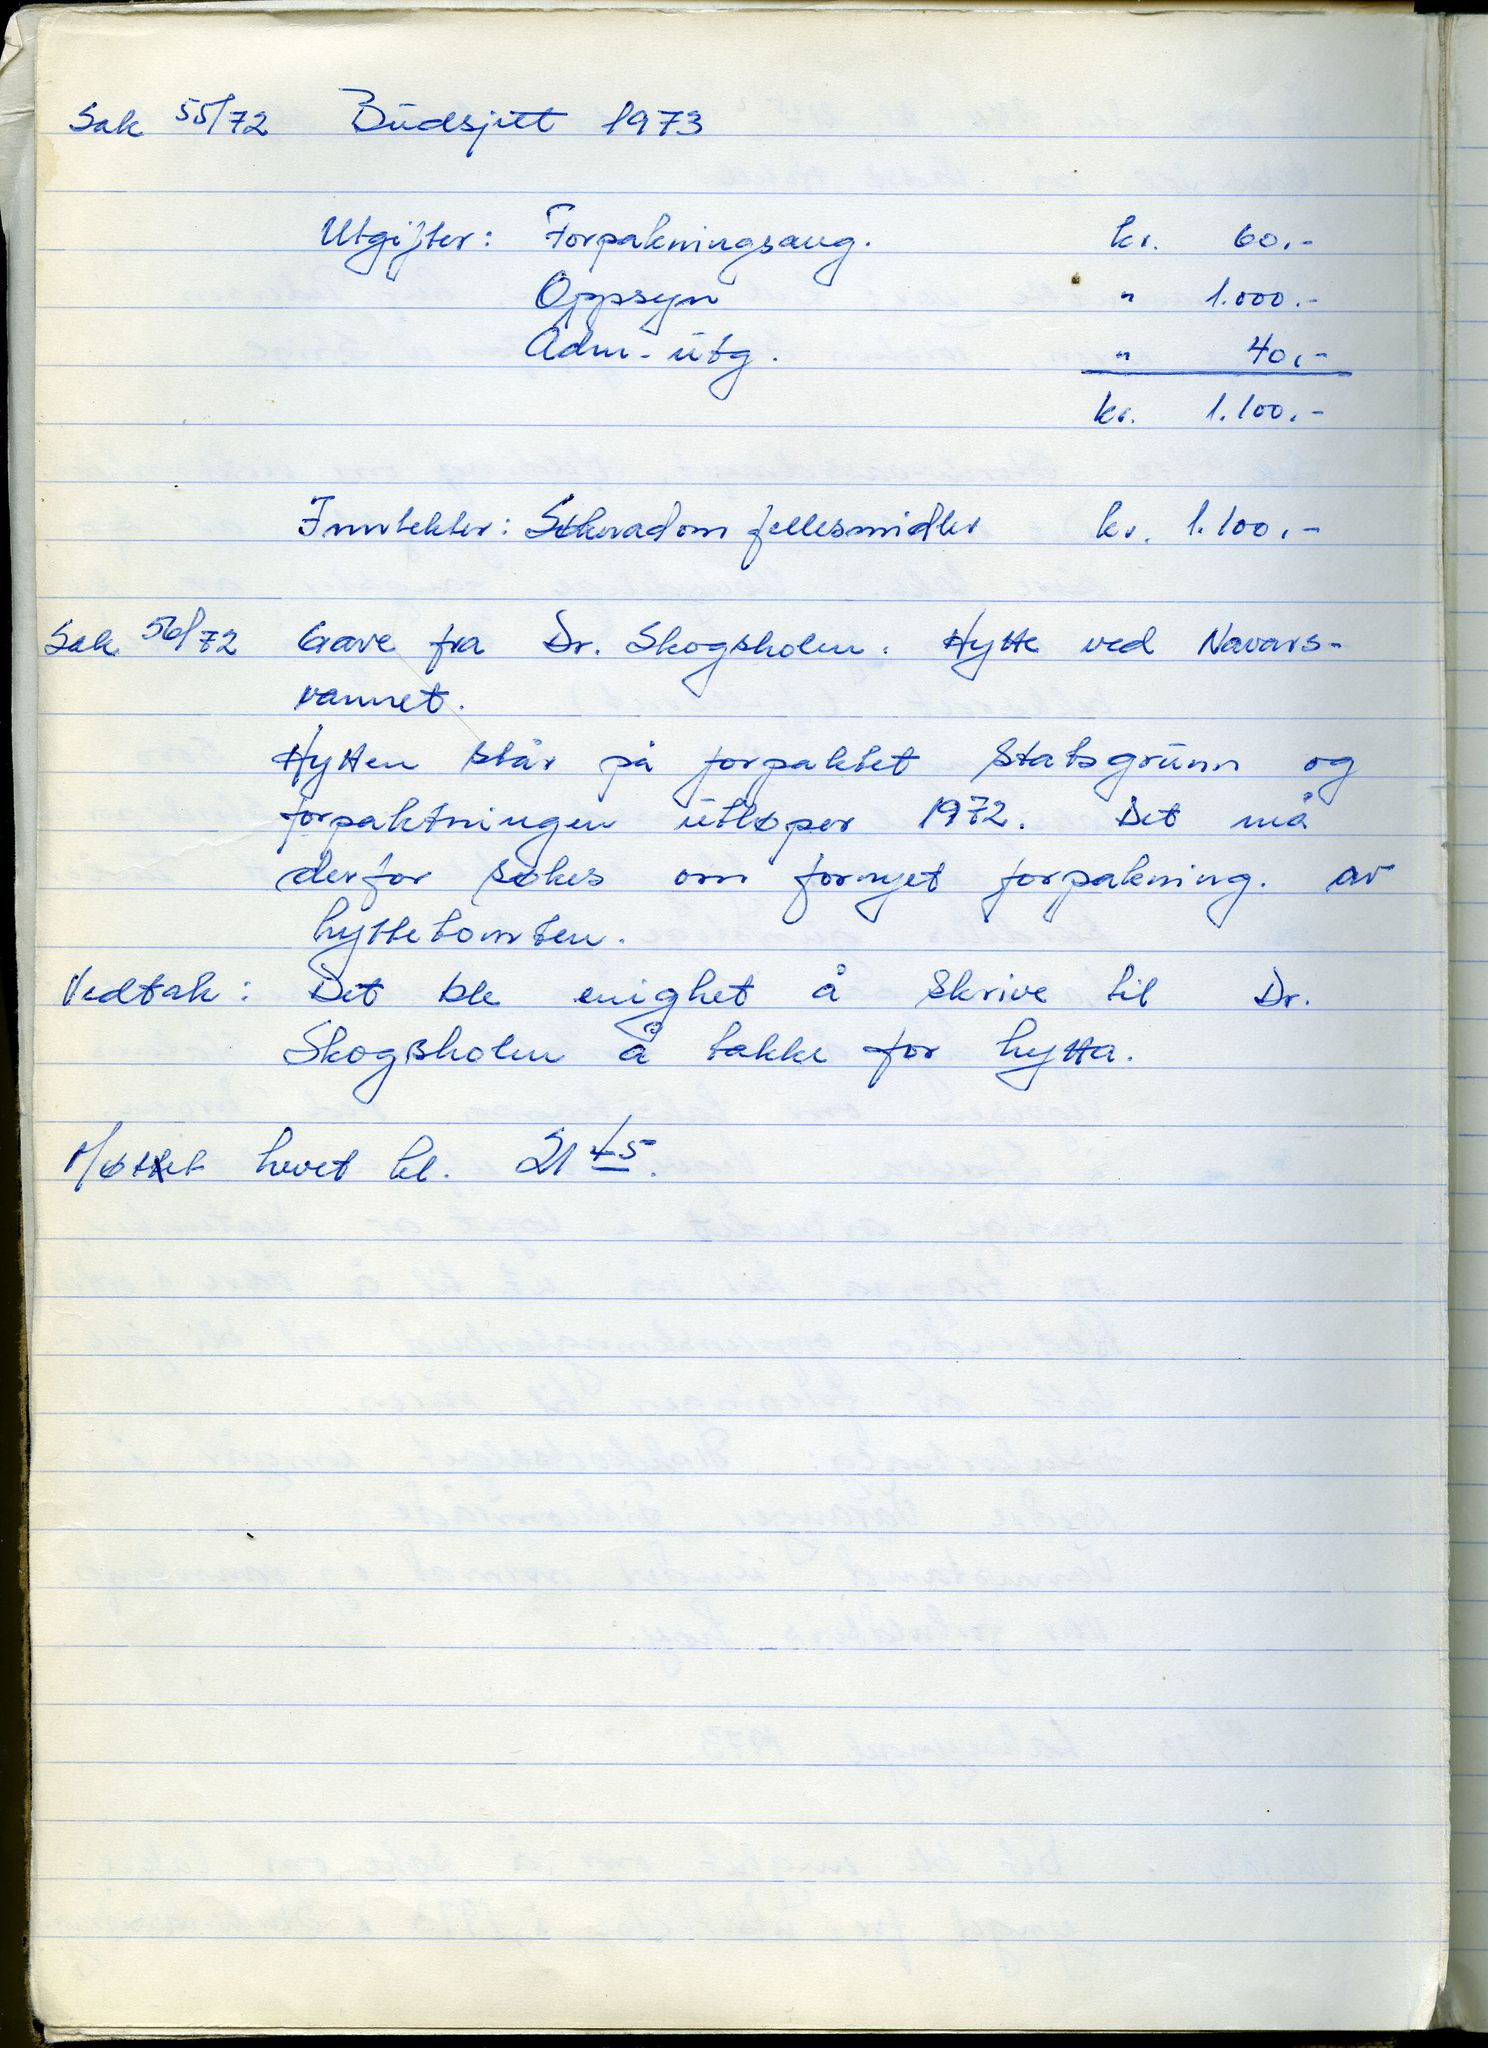 Sak 55/72 Budsjett 1973
Utgifter: Forpakningsavg. kr. 60.-
Oppsyn " 1.000.-
Adm-utg. " 40.-
kr. 1.100.-
Inntekter: fellesmidler kr. 1.100.-
Sak 56/72 Gave fra Dr. Skogsholm. Hytte ved Navars-
vannet.
Hytten står på forpaktet Statsgrunn og
forpaktningen utløper 1972. Det må
derfor søkes om fornyet forpakning. av
hyttetomten.
Vedtak: Det ble enighet å skrive til Dr.
Skogsholm å takke for hytta.
Møttet hevet kl. 21 45.